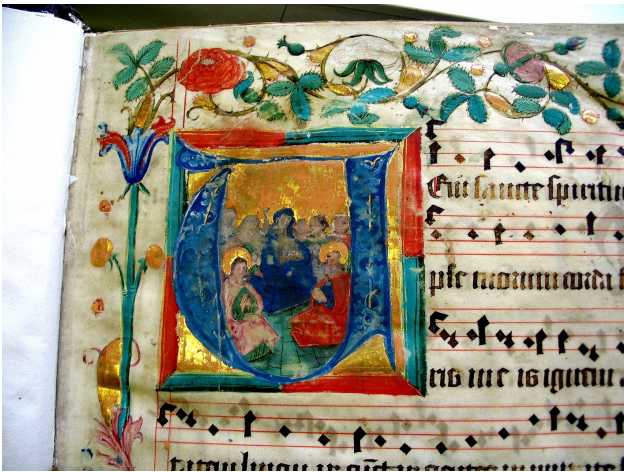 VEni sancte spiritu
ple tuorum corda f
ris in e is ignem a